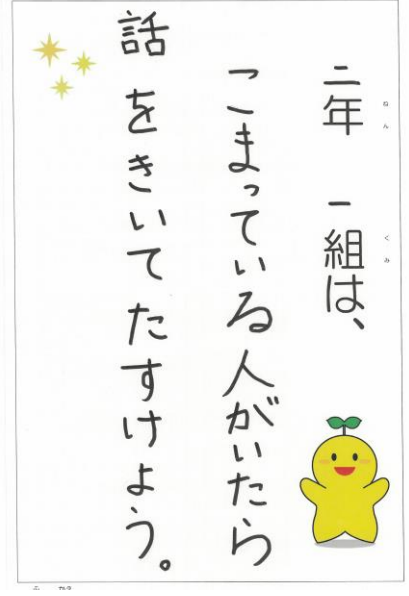 二年 一組は、
ねん くみ
こまっている人がいたら
話をきいてたすけよう。